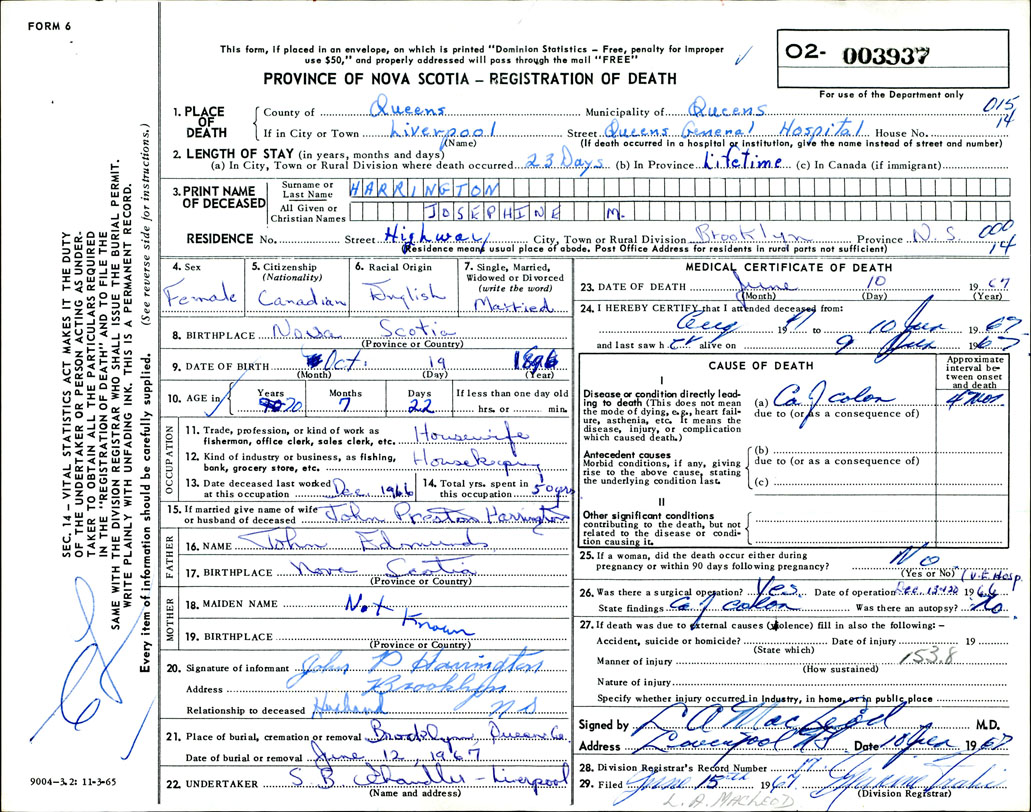 FORM 6
This form, if placed in an envelope, on which is printed "Dominion Statistics – Free, penalty for improper
use $50," and properly addressed will pass through the mail "FREE"
PROVINCE OF NOVA SCOTIA – REGISTRATION OF DEATH
02- 003937
For use of the Department only
1. PLACE OF DEATH
County of Queens Municipality of Queens 015
If in City or Town Liverpool Street Queens General Hospital House No. 14
(Name) (If death occurred in a hospital or institution, give the name instead of street and number)
2. LENGTH OF STAY (in years, months and days)
(a) In City, Town or Rural Division where death occurred 23 Days (b) In Province Lifetime (c) In Canada (if immigrant)
3. PRINT NAME OF DECEASED
Surname or Last Name HARRINGTON
All Given or Christian Names JOSEPHINE M.
RESIDENCE No. Street Highway City, Town or Rural Division Brooklyn Province N.S. 000
(Residence means usual place of abode. Post Office Address for residents in rural parts not sufficient) 14
4. Sex Female
5. Citizenship (Nationality) Canadian
6. Racial Origin English
7. Single, Married, Widowed or Divorced (write the word) Married
8. BIRTHPLACE Nova Scotia
(Province or Country)
9. DATE OF BIRTH Oct. 19 1896
(Month) (Day) (Year)
10. AGE in Years 70 Months 7 Days 22 If less than one day old hrs. or min.
OCCUPATION
11. Trade, profession, or kind of work as fisherman, office clerk, sales clerk, etc. Housewife
12. Kind of industry or business, as fishing, bank, grocery store, etc. Housekeeping
13. Date deceased last worked at this occupation Dec. 1966
14. Total yrs. spent in this occupation 50 yrs
15. If married give name of wife or husband of deceased John Preston Harrington
FATHER
16. NAME John Edmunds
17. BIRTHPLACE Nova Scotia
(Province or Country)
MOTHER
18. MAIDEN NAME Not Known
19. BIRTHPLACE
(Province or Country)
20. Signature of informant John P Harrington
Address Brooklyn
Relationship to deceased Husband NS
21. Place of burial, cremation or removal Brooklyn Queens Co.
Date of burial or removal June 12, 1967
22. UNDERTAKER S. B. Chandler - Liverpool
(Name and address)
MEDICAL CERTIFICATE OF DEATH
23. DATE OF DEATH June 10 1967
(Month) (Day) (Year)
24. I HEREBY CERTIFY that I attended deceased from:
Aug 19 to 10 Jun 1967
and last saw her alive on 9 Jun 1967
CAUSE OF DEATH
Approximate interval between onset and death
I
Disease or condition directly leading to death (This does not mean the mode of dying, e.g., heart failure, asthenia, etc. It means the disease, injury, or complication which caused death.)
(a) Ca of colon 4 mos
due to (or as a consequence of)
Antecedent causes
Morbid conditions, if any, giving rise to the above cause, stating the underlying condition last.
(b)
due to (or as a consequence of)
(c)
II
Other significant conditions
contributing to the death, but not related to the disease or condition causing it.
25. If a woman, did the death occur either during pregnancy or within 90 days following pregnancy? No
(Yes or No) (V.E. Hosp.
26. Was there a surgical operation? Yes Date of operation Dec. 1966
State findings Ca of colon Was there an autopsy? No
27. If death was due to external causes (violence) fill in also the following: –
Accident, suicide or homicide? Date of injury 19
(State which)
Manner of injury 153.8
(How sustained)
Nature of injury
Specify whether injury occurred in Industry, in home, or in public place
Signed by L A MacLeod M.D.
Address Liverpool NS Date 10 Jun 1967
28. Division Registrar's Record Number 17
29. Filed June 15th 1967
(Division Registrar)
L. A. MACLEOD
SEC. 14 – VITAL STATISTICS ACT MAKES IT THE DUTY
OF THE UNDERTAKER OR PERSON ACTING AS UNDER-
TAKER TO OBTAIN ALL THE PARTICULARS REQUIRED
IN THE "REGISTRATION OF DEATH" AND TO FILE THE
SAME WITH THE DIVISION REGISTRAR WHO SHALL ISSUE THE BURIAL PERMIT.
WRITE PLAINLY WITH UNFADING INK. THIS IS A PERMANENT RECORD.
Every item of information should be carefully supplied. (See reverse side for instructions.)
9004–3.2: 11-3-65